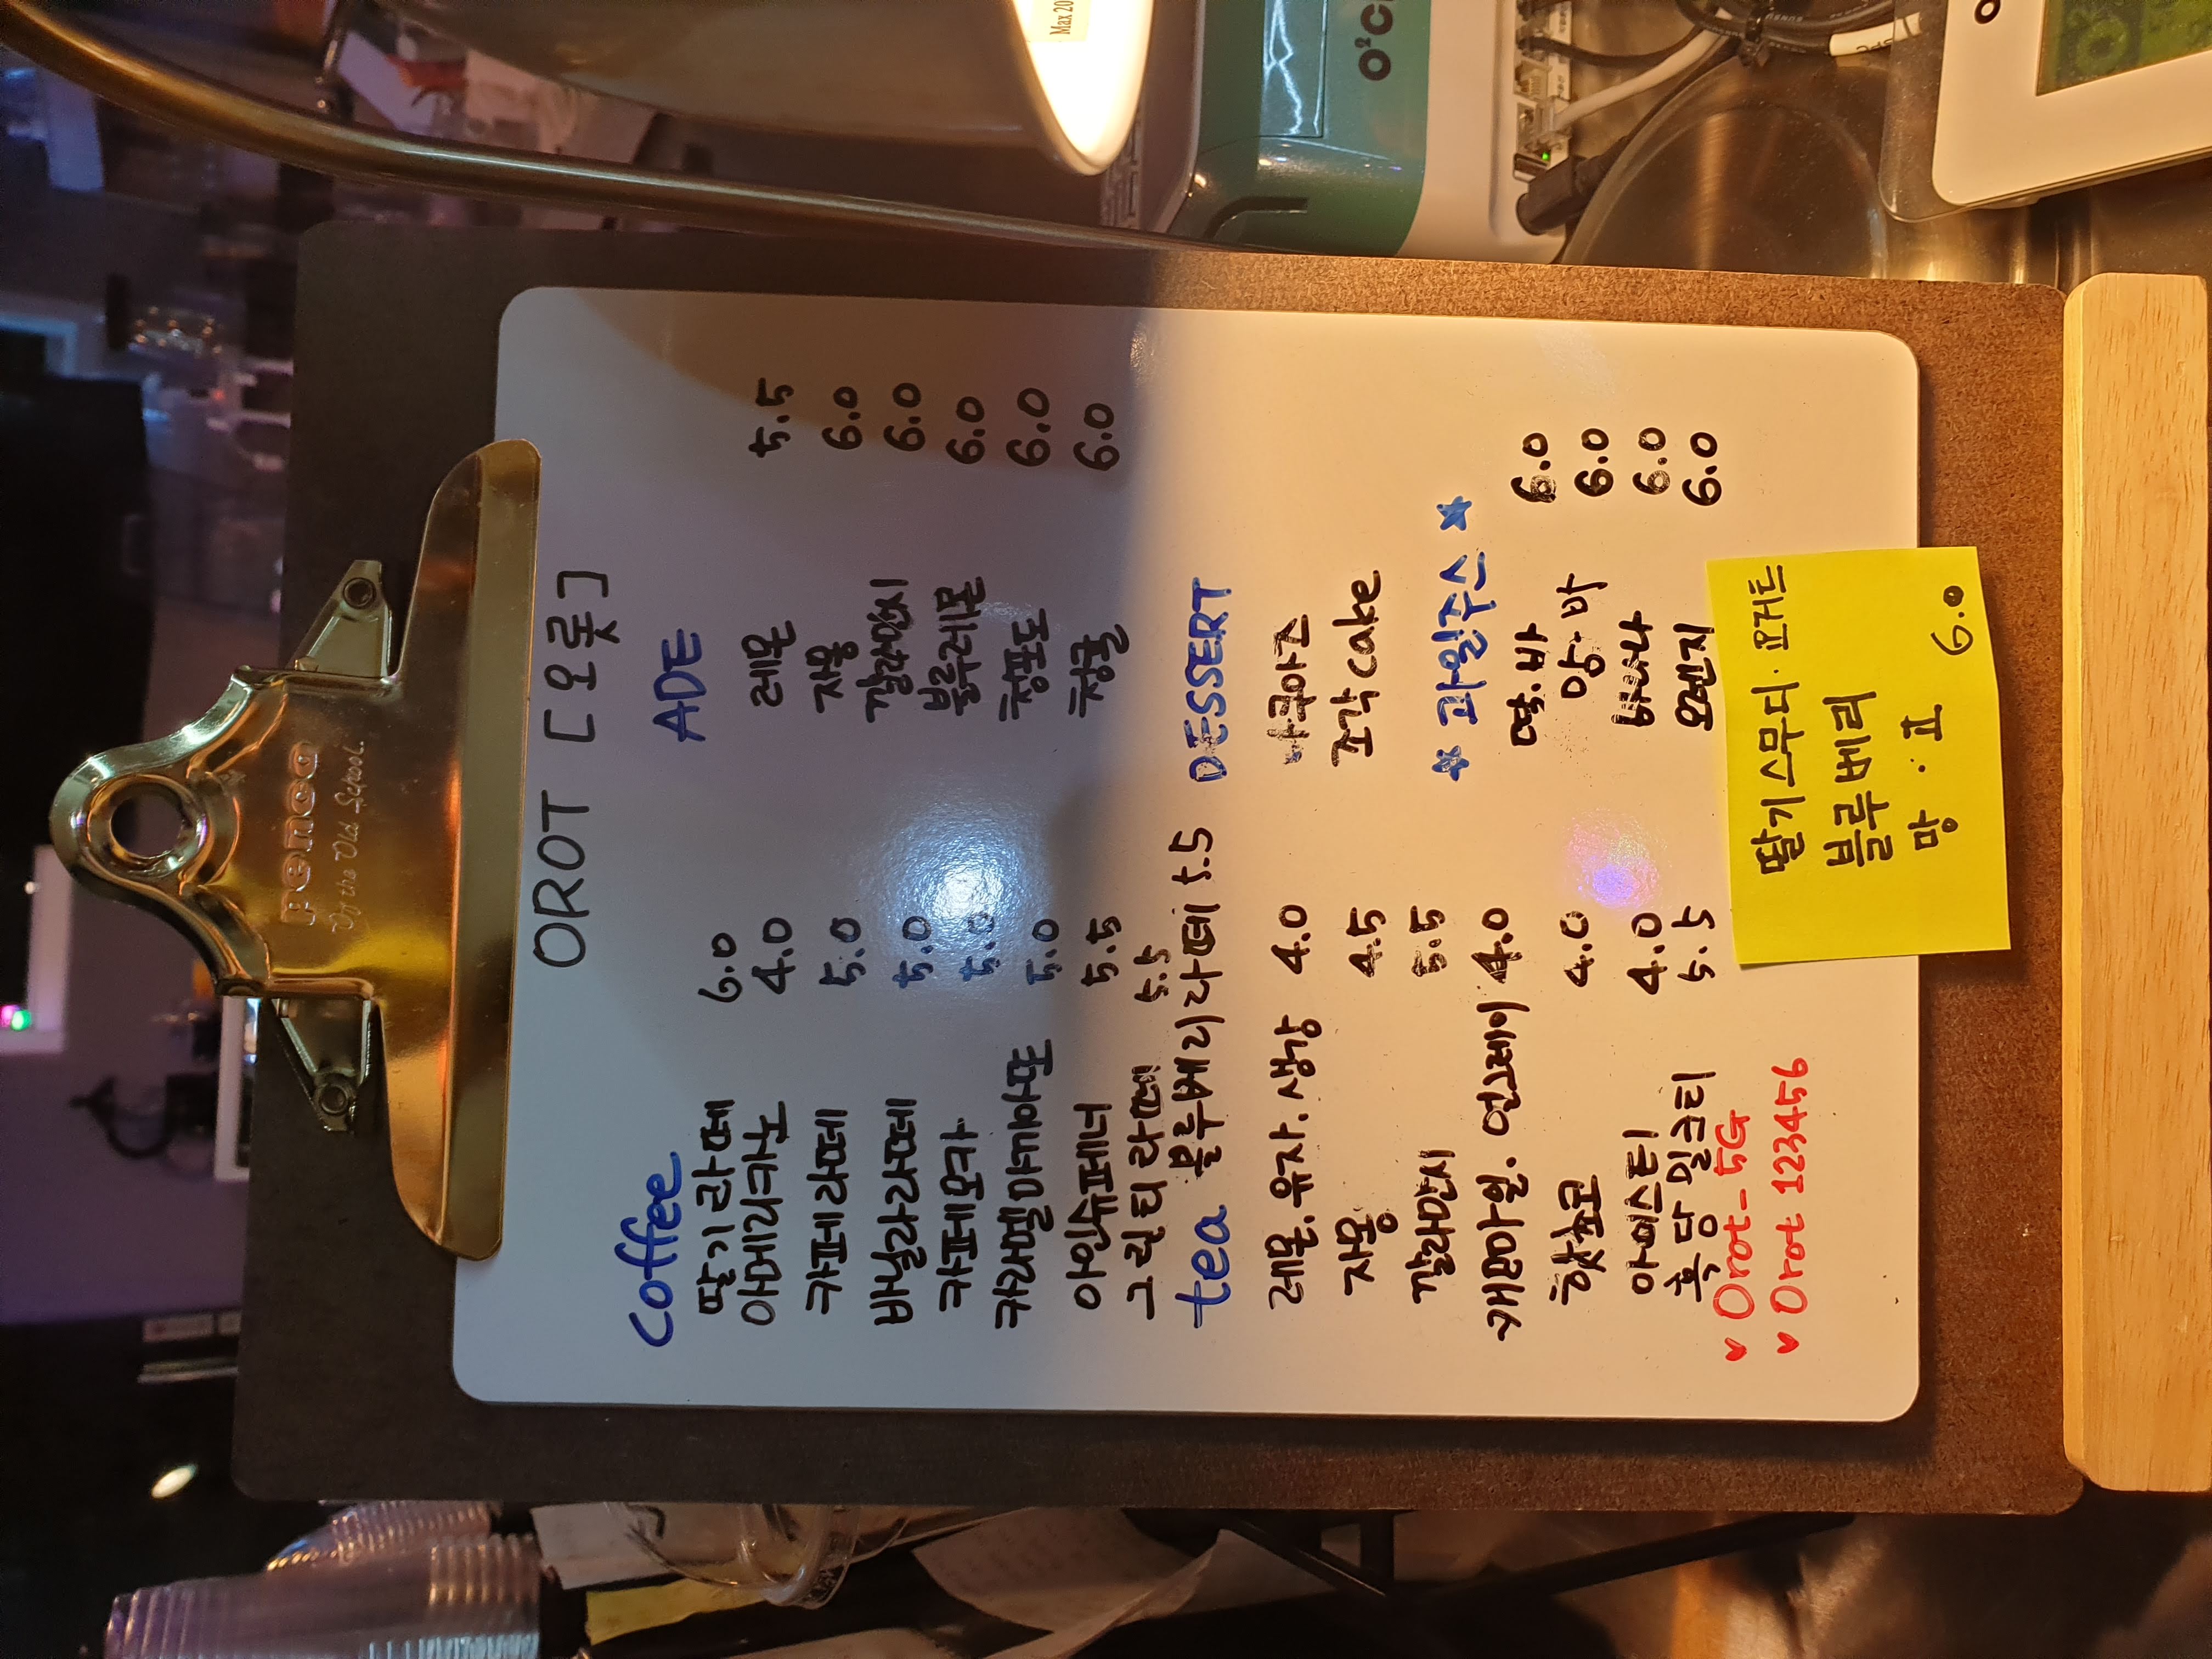 penco
Of the Old School.
OROT [오롯]
Coffee
딸기라떼 6.0
아메리카노 4.0
카페라떼 5.0
바닐라라떼 5.0
카페모카 5.0
카라멜마끼아또 5.0
아인슈페너 5.5
그린티라떼 5.5
블루베리라떼 5.5
tea
레몬.유자.생강 4.0
자몽 4.5
깔라만시 5.5
캐모마일.얼그레이 4.0
핫초코 4.0
아이스티 4.0
흑당밀크티 5.5
♥ Orot_5G
♥ Orot 123456
ADE
레몬 5.5
자몽 6.0
깔라만시 6.0
블루레몬 6.0
청포도 6.0
청귤 6.0
DESSERT
조각cake
★ 과일주스 ★
딸.바 6.0
망.바 6.0
바나나 6.0
오렌지 6.0
딸기스무디.요거트
블루베리
망.요 6.0
Max 20